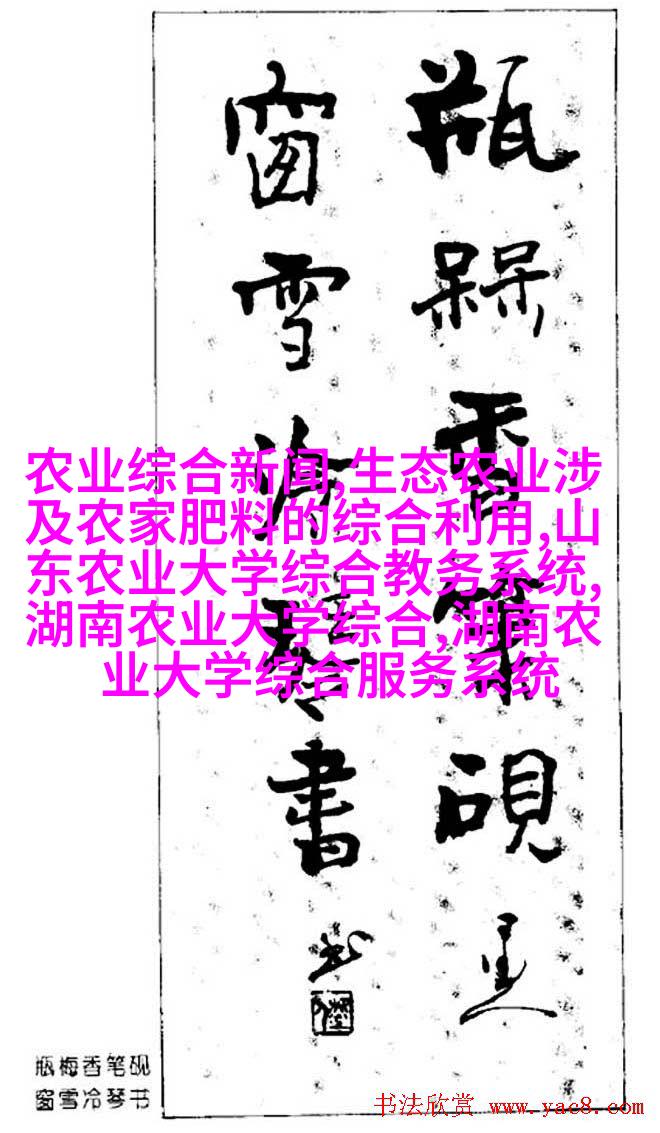 瓶槑香筆硯
窗雪冷琴書
农业综合新闻,生态农业涉
及农家肥料的综合利用,山
东农业大学综合教务系统,
湖南农业大学综合,湖南农
业大学综合服务系统
瓶梅香笔砚
窗雪冷琴书
书法欣赏 www.yac8.com